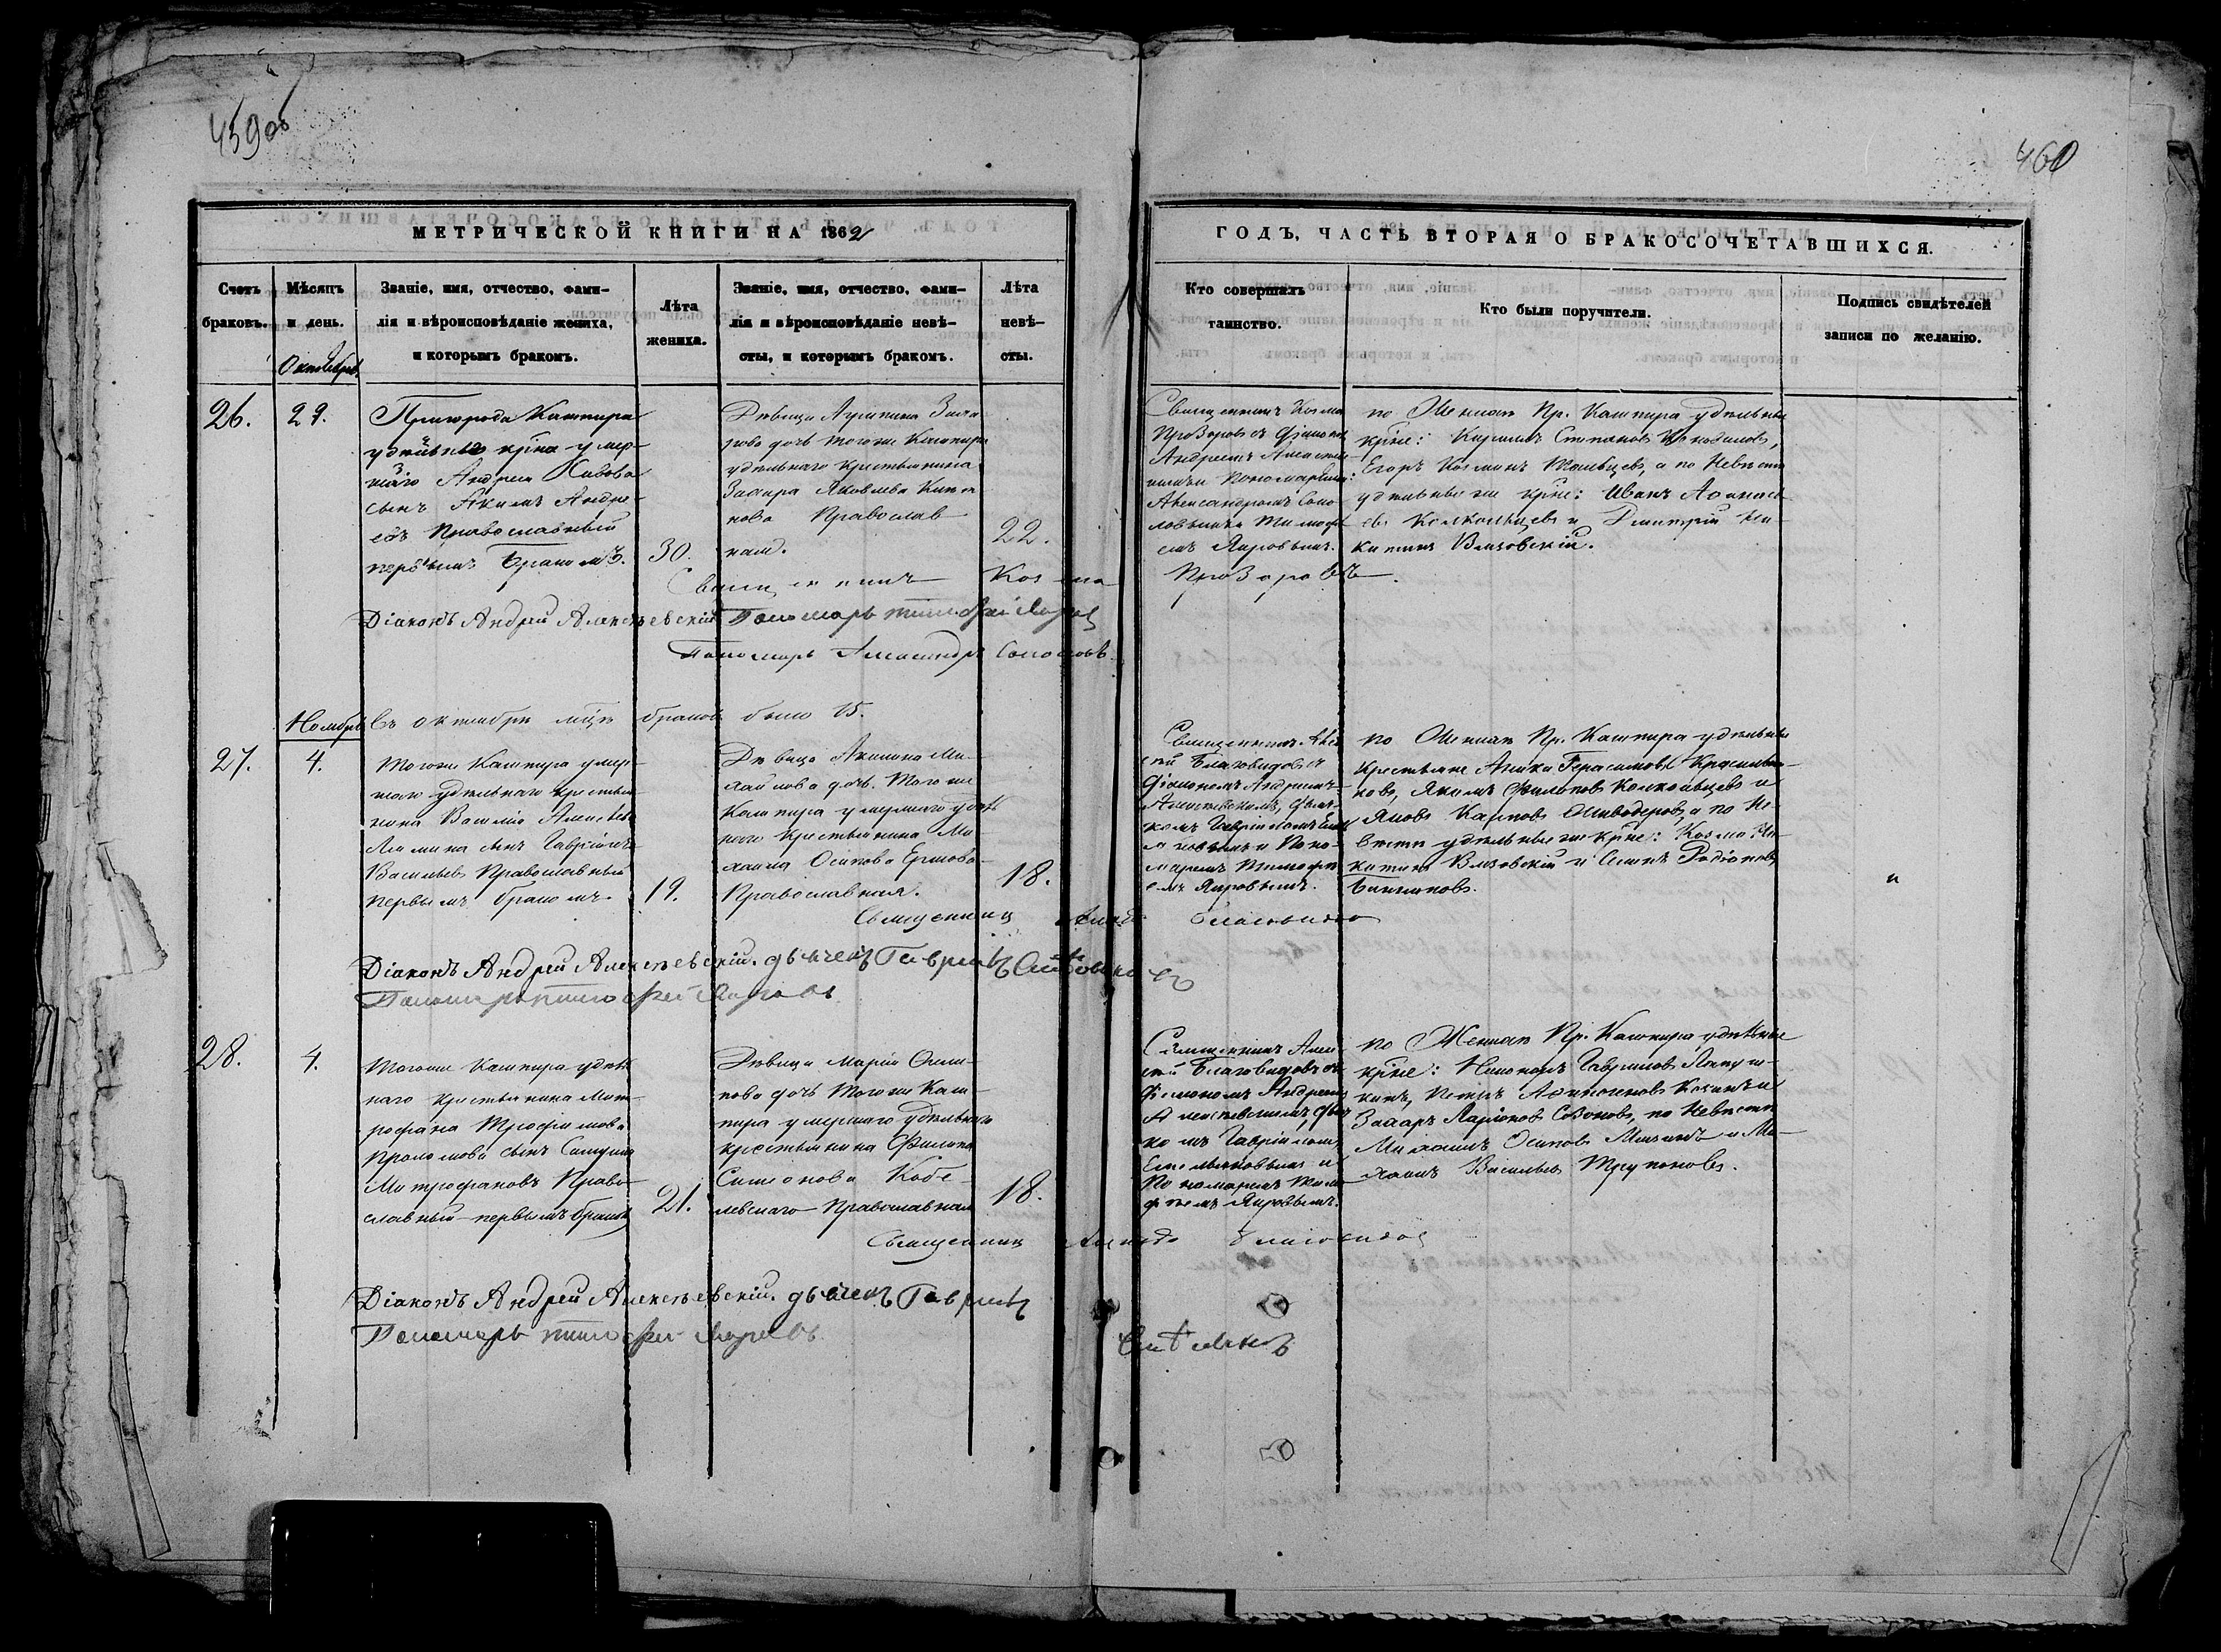 459 об
460
МЕТРИЧЕСКОЙ КНИГИ НА 1862
ГОДЪ, ЧАСТЬ ВТОРАЯ О БРАКОСОЧЕТАВШИХСЯ.
Счетъ
браковъ.
Мѣсяцъ
и день.
Октябрь.
Званіе, имя, отчество, фами-
лія и вѣроисповѣданіе жениха,
и которымъ бракомъ.
Лѣта
жениха.
Званіе, имя, отчество, фами-
лія и вѣроисповѣданіе невѣ-
сты, и которымъ бракомъ.
Лѣта
невѣ-
сты.
Кто совершалъ
таинство.
Кто были поручители.
Подпись свидѣтелей
записи по желанію.
26.
Пригорода Кашпира
удѣльнаго кр҃на умер-
шаго Андрея
сынъ Акимъ Андре-
евъ Православный
первымъ бракомъ.
30.
Дѣвица Заха
рова дочь тогоже Кашпира
удѣльнаго крестьянина
Захара Яковлева
Православ
ная.
22.
Священникъ Козма
Прозоровъ съ діакономъ
Андреемъ Алексѣев-
Пономарями:
Александромъ Соко-
ловымъ и Тимофе
емъ Яировымъ.
по Женихѣ Пр. Кашпира удѣльные
кр҃не: Степановъ
Егоръ Козминъ а по Невѣстѣ
удѣльные же кр҃не: Иванъ Аѳанась-
евъ Колкольцевъ и Димитрій Ни-
китинъ Вязовскій.
Священникъ Козма Прозоровъ.
Діаконъ Андрей Алексѣевскій Пономарь Тимофей Яировъ
Пономарь Александръ Соколовъ
Ноябрь
въ октябрѣ мц҃ѣ браковъ было 15.
27.
4.
Тогоже Кашпира умер-
шаго удѣльнаго крестья
нина Василія Алексѣева
сынъ Гавріилъ
Васильевъ Православный
первымъ бракомъ.
19.
Дѣвица Акилина Ми-
хайлова дочь тогоже
Кашпира умершаго удѣль
наго крестьянина Ми
хаила Осипова Ершова
Православная.
18.
Священникъ Алек
сѣй Благовидовъ съ
діакономъ Андреемъ
Алексѣевскимъ, дьяч-
комъ Гавріиломъ Емель
яновымъ и Поно-
маремъ Тимофе
емъ Яировымъ.
по Женихѣ Пр. Кашпира удѣльные
крестьяне Аника Герасимовъ Красильни-
ковъ, Филиповъ Колкольцевъ и
Яковъ Карповъ а по Не-
вѣстѣ удѣльные же кр҃не: Козма Ни-
китинъ Вязовскій и Семенъ Родіоновъ
"
Священникъ Алексѣй Благовидовъ
Діаконъ Андрей Алексѣевскій. дьячекъ Гаврилъ
Пономарь Тимофей Яировъ
28.
4.
Тогоже Кашпира удѣль
наго крестьянина Мит-
рофана Трофимова
сынъ
Митрофановъ Право-
славный первымъ бракомъ
21.
Дѣвица Марія Фили-
пова дочь тогоже Каш-
пира умершаго удѣльнаго
крестьянина Филипа
Симеонова Кобе-
левскаго Православная
18.
Священникъ Алек
сѣй Благовидовъ съ
Діакономъ Андреемъ
Алексѣевскимъ, дьяч
комъ Гавріиломъ
Емельяновымъ и
Пономаремъ Тимо
феемъ Яировымъ.
по Женихѣ Пр. Кашпира удѣльные
кр҃не: Гавриловъ
Петръ и
Захаръ Ларіоновъ по Невѣстѣ
Михаилъ Осиповъ и Ми-
хаилъ Васильевъ
Священникъ Алексѣй Благовидовъ
Діаконъ Андрей Алексѣевскій. дьячекъ Гаврилъ
Пономарь Тимофей Яировъ